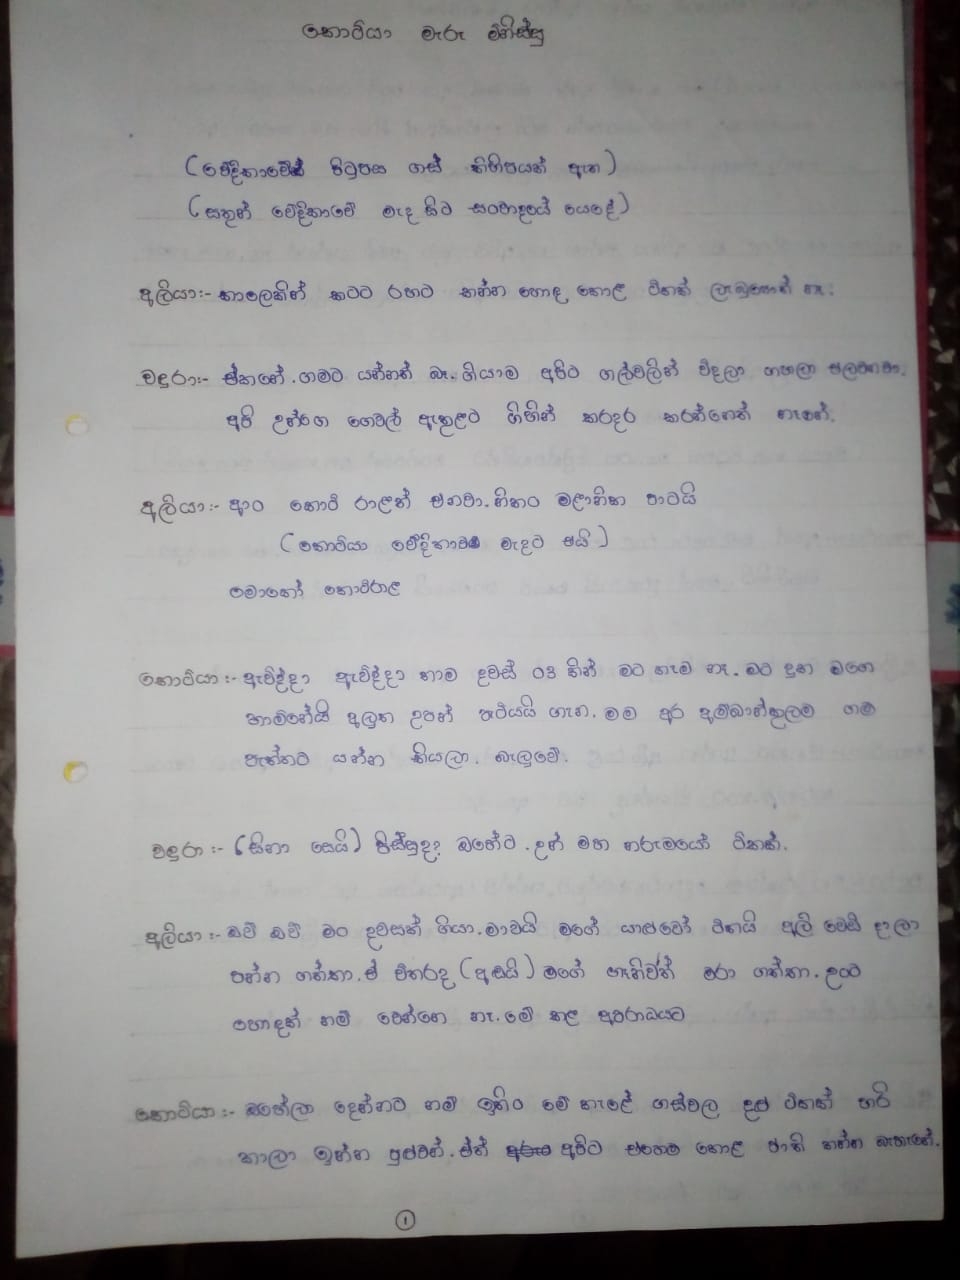 කොටියා මැරූ මිනිස්සු
(වේදිකාවේ පිටුපස ගස් කිහිපයක් ඇත)
(සතුන් වේදිකාවේ මැද සිට සංවාදයේ යෙදේ)
අලියා:- කාලෙකින් කටට රහට කන්න හොඳ කොළ ටිකක් ලැබුනෙත් නෑ.
වඳුරා:- ඒකනේ. ගමට යන්නත් බෑ. ගියාම අපිට ගල්වලින් විදලා ගහලා එලවනවා.
අපි උන්ගෙ ගෙවල් ඇතුළට ගිහින් කරදර කරන්නෙත් නෑනේ.
අලියා:- ආං කොටි රාළත් එනවා. හිතට මළානික පාටයි
(කොටියා වේදිකාව මැදට එයි)
මොකෝ කොටිරාළ
කොටියා:- ඇවිද්දා ඇවිද්දා තාම දවස් 03 කින් මට කෑම නෑ. මට දුක මගෙ
හාමිනෙයි අලුත උපන් පැටියයි ගැන. මම අර අඹබාන්කුලම ගම
පැත්තට යන්න කියලා බැලුවේ.
වඳුරා:- (සිනා සෙයි) පිස්සුද? ඔහේට. උන් මහ නරුමයෝ ටිකක්.
අලියා:- ඔව් ඔව් මං දවසක් ගියා. මාවයි මගේ යාළුවෝ ටිකයි අලි වෙඩි දාලා
පන්න ගත්තා. ඒ විතරද (අඬයි) මගේ පැටිවත් මරා ගත්තා. උංට
හොඳක් නම් වෙන්නෙ නෑ. මේ කළ අපරාධයට
කොටියා:- ඔහේලා දෙන්නට නම් ඉතිං මේ කැලේ ගස්වල දළු ටිකක් හරි
කාලා ඉන්න පුළුවන්. ඒත් අපිට එහෙම කොළ ජාති කන්න බැහැනේ.
1